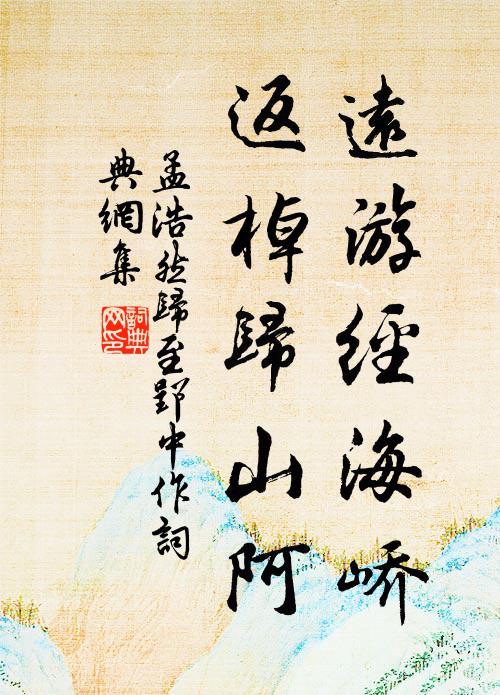 遠游經海嶠
返棹歸山阿
孟浩然歸至郢中作詞
典網集
詞典
网印